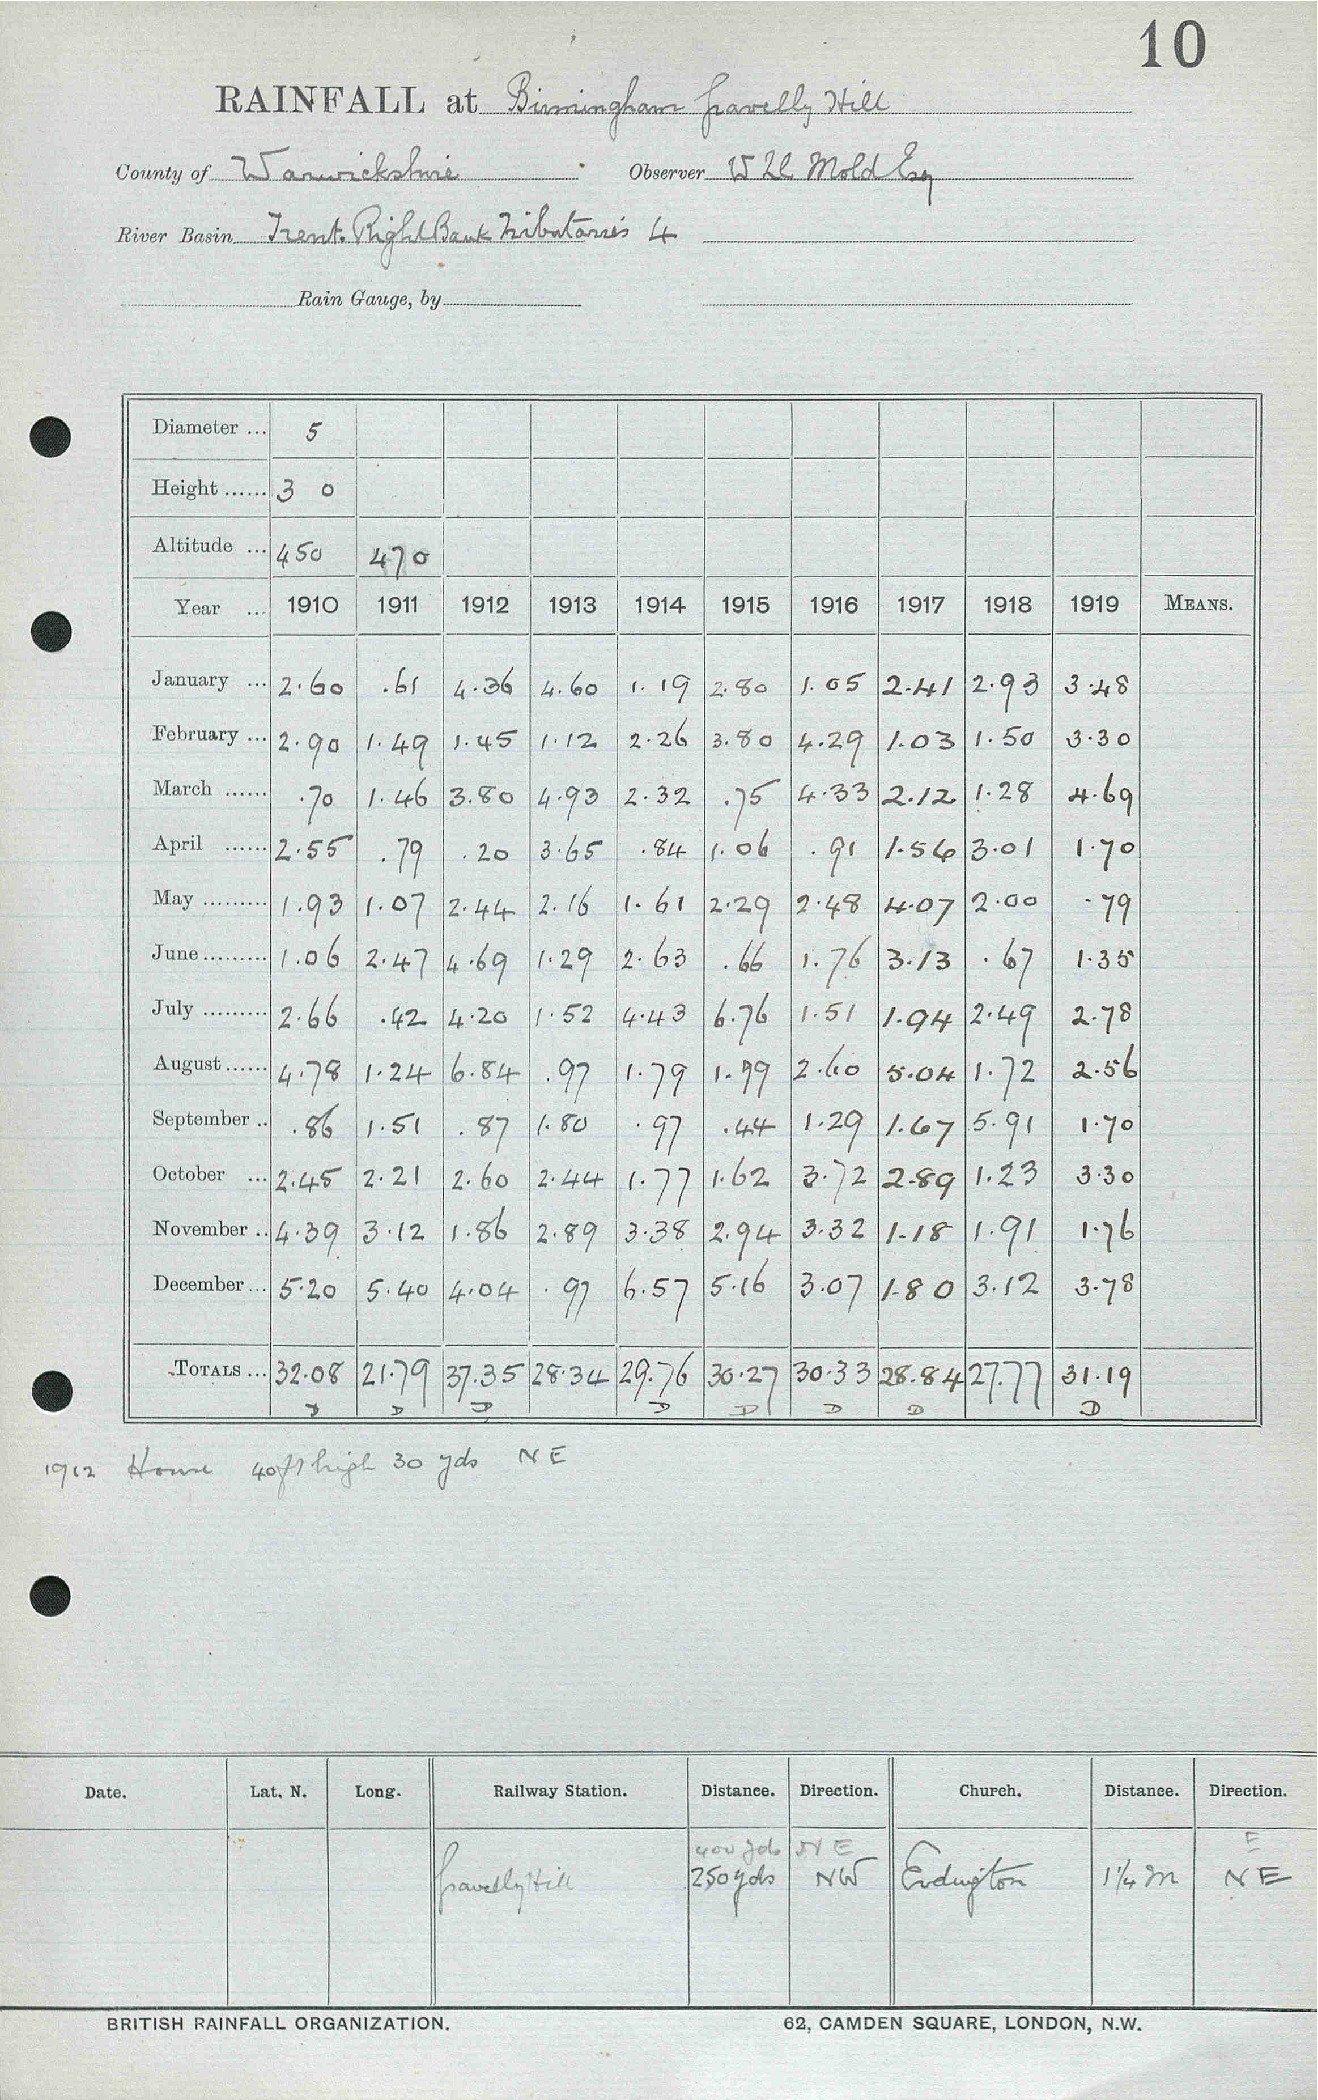 10
RAINFALL at Birmingham Gravelly Hill
County of Warwickshire Observer W H Mold Esq
River Basin Trent. Right Bank Tributaries 4
Rain Gauge, by
Diameter ... 5
Height ...... 3 0
Altitude ... 450 470
Year ... 1910 1911 1912 1913 1914 1915 1916 1917 1918 1919 MEANS.
January ... 2.60 .61 4.36 4.60 1.19 2.80 1.05 2.41 2.93 3.48
February ... 2.90 1.49 1.45 1.12 2.26 3.80 4.29 1.03 1.50 3.30
March ...... .70 1.46 3.80 4.93 2.32 .75 4.33 2.12 1.28 4.69
April ...... 2.55 .79 .20 3.65 .84 1.06 .91 1.56 3.01 1.70
May ......... 1.93 1.07 2.44 2.16 1.61 2.29 2.48 4.07 2.00 .79
June ......... 1.06 2.47 4.69 1.29 2.63 .66 1.76 3.13 .67 1.35
July ......... 2.66 .42 4.20 1.52 4.43 6.76 1.51 1.94 2.49 2.78
August ...... 4.78 1.24 6.84 .97 1.79 1.99 2.60 5.04 1.72 2.56
September .. .86 1.51 .87 1.80 .97 .44 1.29 1.67 5.91 1.70
October ... 2.45 2.21 2.60 2.44 1.77 1.62 3.72 2.89 1.23 3.30
November .. 4.39 3.12 1.86 2.89 3.38 2.94 3.32 1.18 1.91 1.76
December ... 5.20 5.40 4.04 .97 6.57 5.16 3.07 1.80 3.12 3.78
TOTALS ... 32.08 21.79 37.35 28.34 29.76 30.27 30.33 28.84 27.77 31.19
D D D D D D D D
1912 House 40ft high 30 yds NE
Date. Lat. N. Long. Railway Station. Distance. Direction. Church. Distance. Direction.
400 yds NE E
Gravelly Hill 250 yds NW Erdington 1¼ m NE
BRITISH RAINFALL ORGANIZATION. 62, CAMDEN SQUARE, LONDON, N.W.